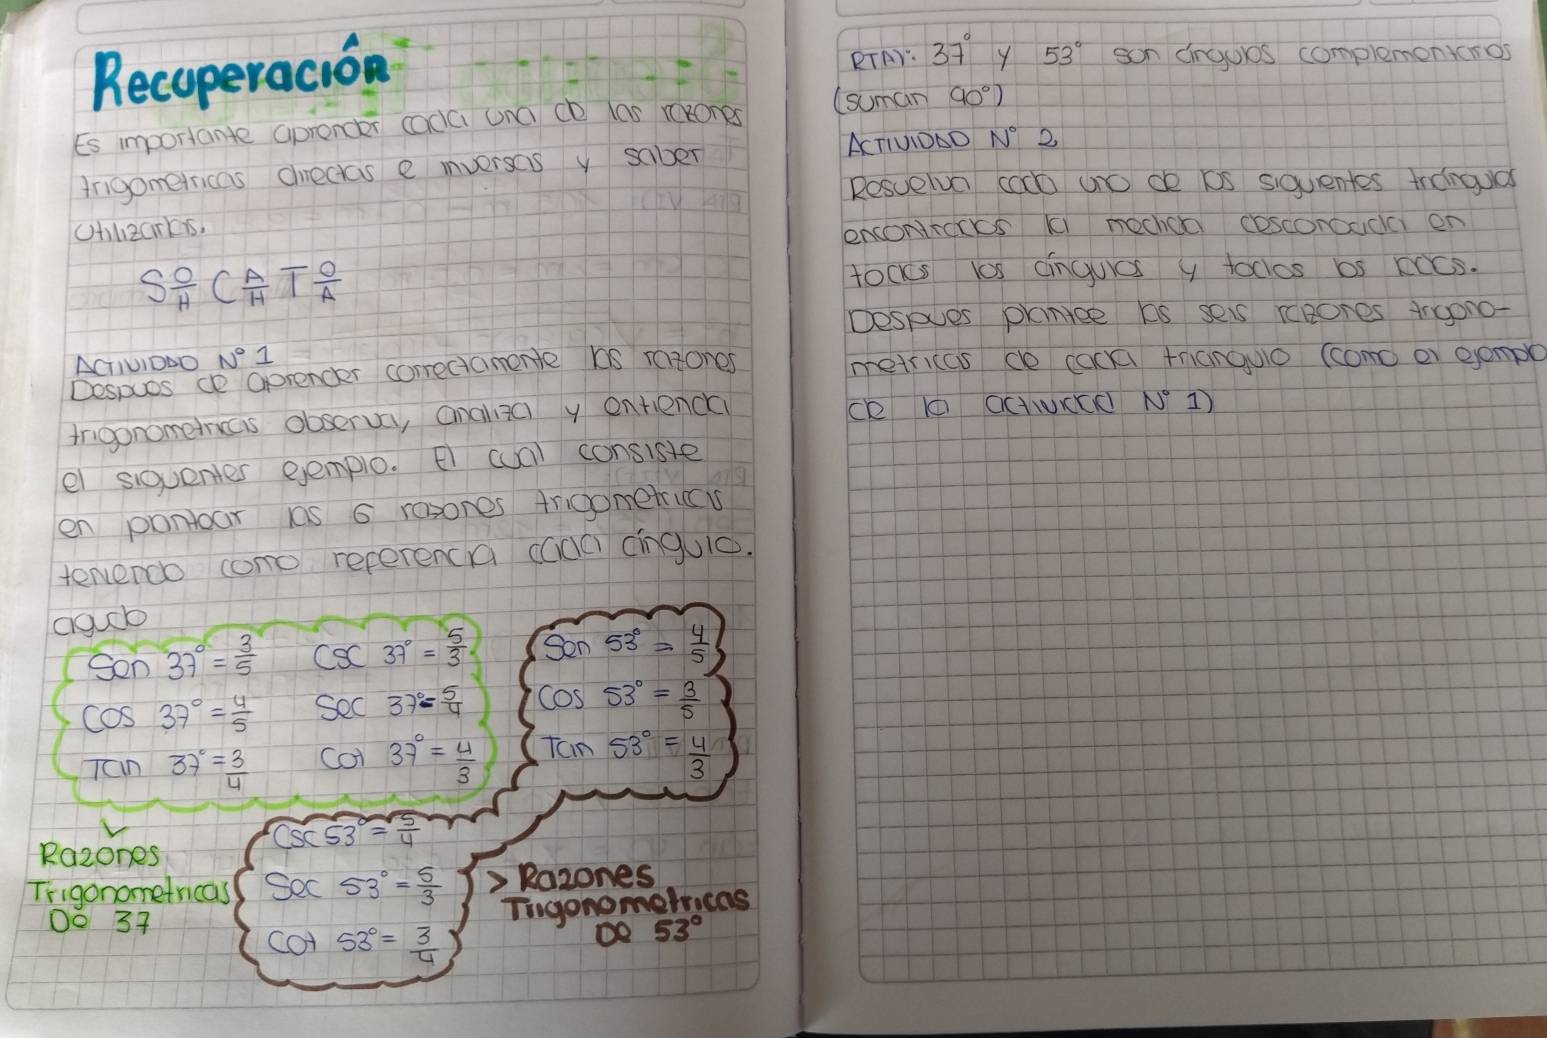 Recuperación
Es importante aprender cada una de las razones
trigometricas directas e inversas y saber
utilizarlas.
S O/H C A/H T O/A
ACTIVIDAD N° 1
Despues de aprender correctamente las razones
trigonometricas observa, analiza y entienda
el siguentes ejemplo. El cual consiste
en plantear las 6 rasones trigometricas
teniendo como referencia cada ángulo.
agudo
Sen 37° = 3/5 Csc 37° = 5/3
Cos 37° = 4/5 Sec 37° = 5/4
Tan 37° = 3/4 Cot 37° = 4/3
Razones
Trigonometricas
De 37
Sen 53° = 4/5
Cos 53° = 3/5
Tan 53° = 4/3
Csc 53° = 5/4
Sec 53° = 5/3
Cot 53° = 3/4
> Razones
Trigonometricas
De 53°
RTA: 37° y 53° son ángulos complementarios
(suman 90°)
ACTIVIDAD N° 2
Resuelva cada uno de los siguentes triángulos
encontrados la medida desconocida en
todos los ángulos y todos los lados.
Despues plantee las seis razones trigono-
metricas de cada triangulo (como el ejemplo
de la actividad N° 1)